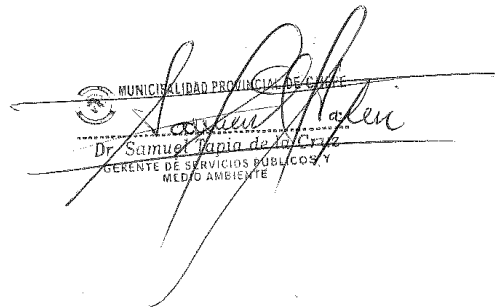 MUNICIPALIDAD PROVINCIAL DE
Dr. Samuel Tapia de la Cruz
GERENTE DE SERVICIOS PÚBLICOS Y
MEDIO AMBIENTE